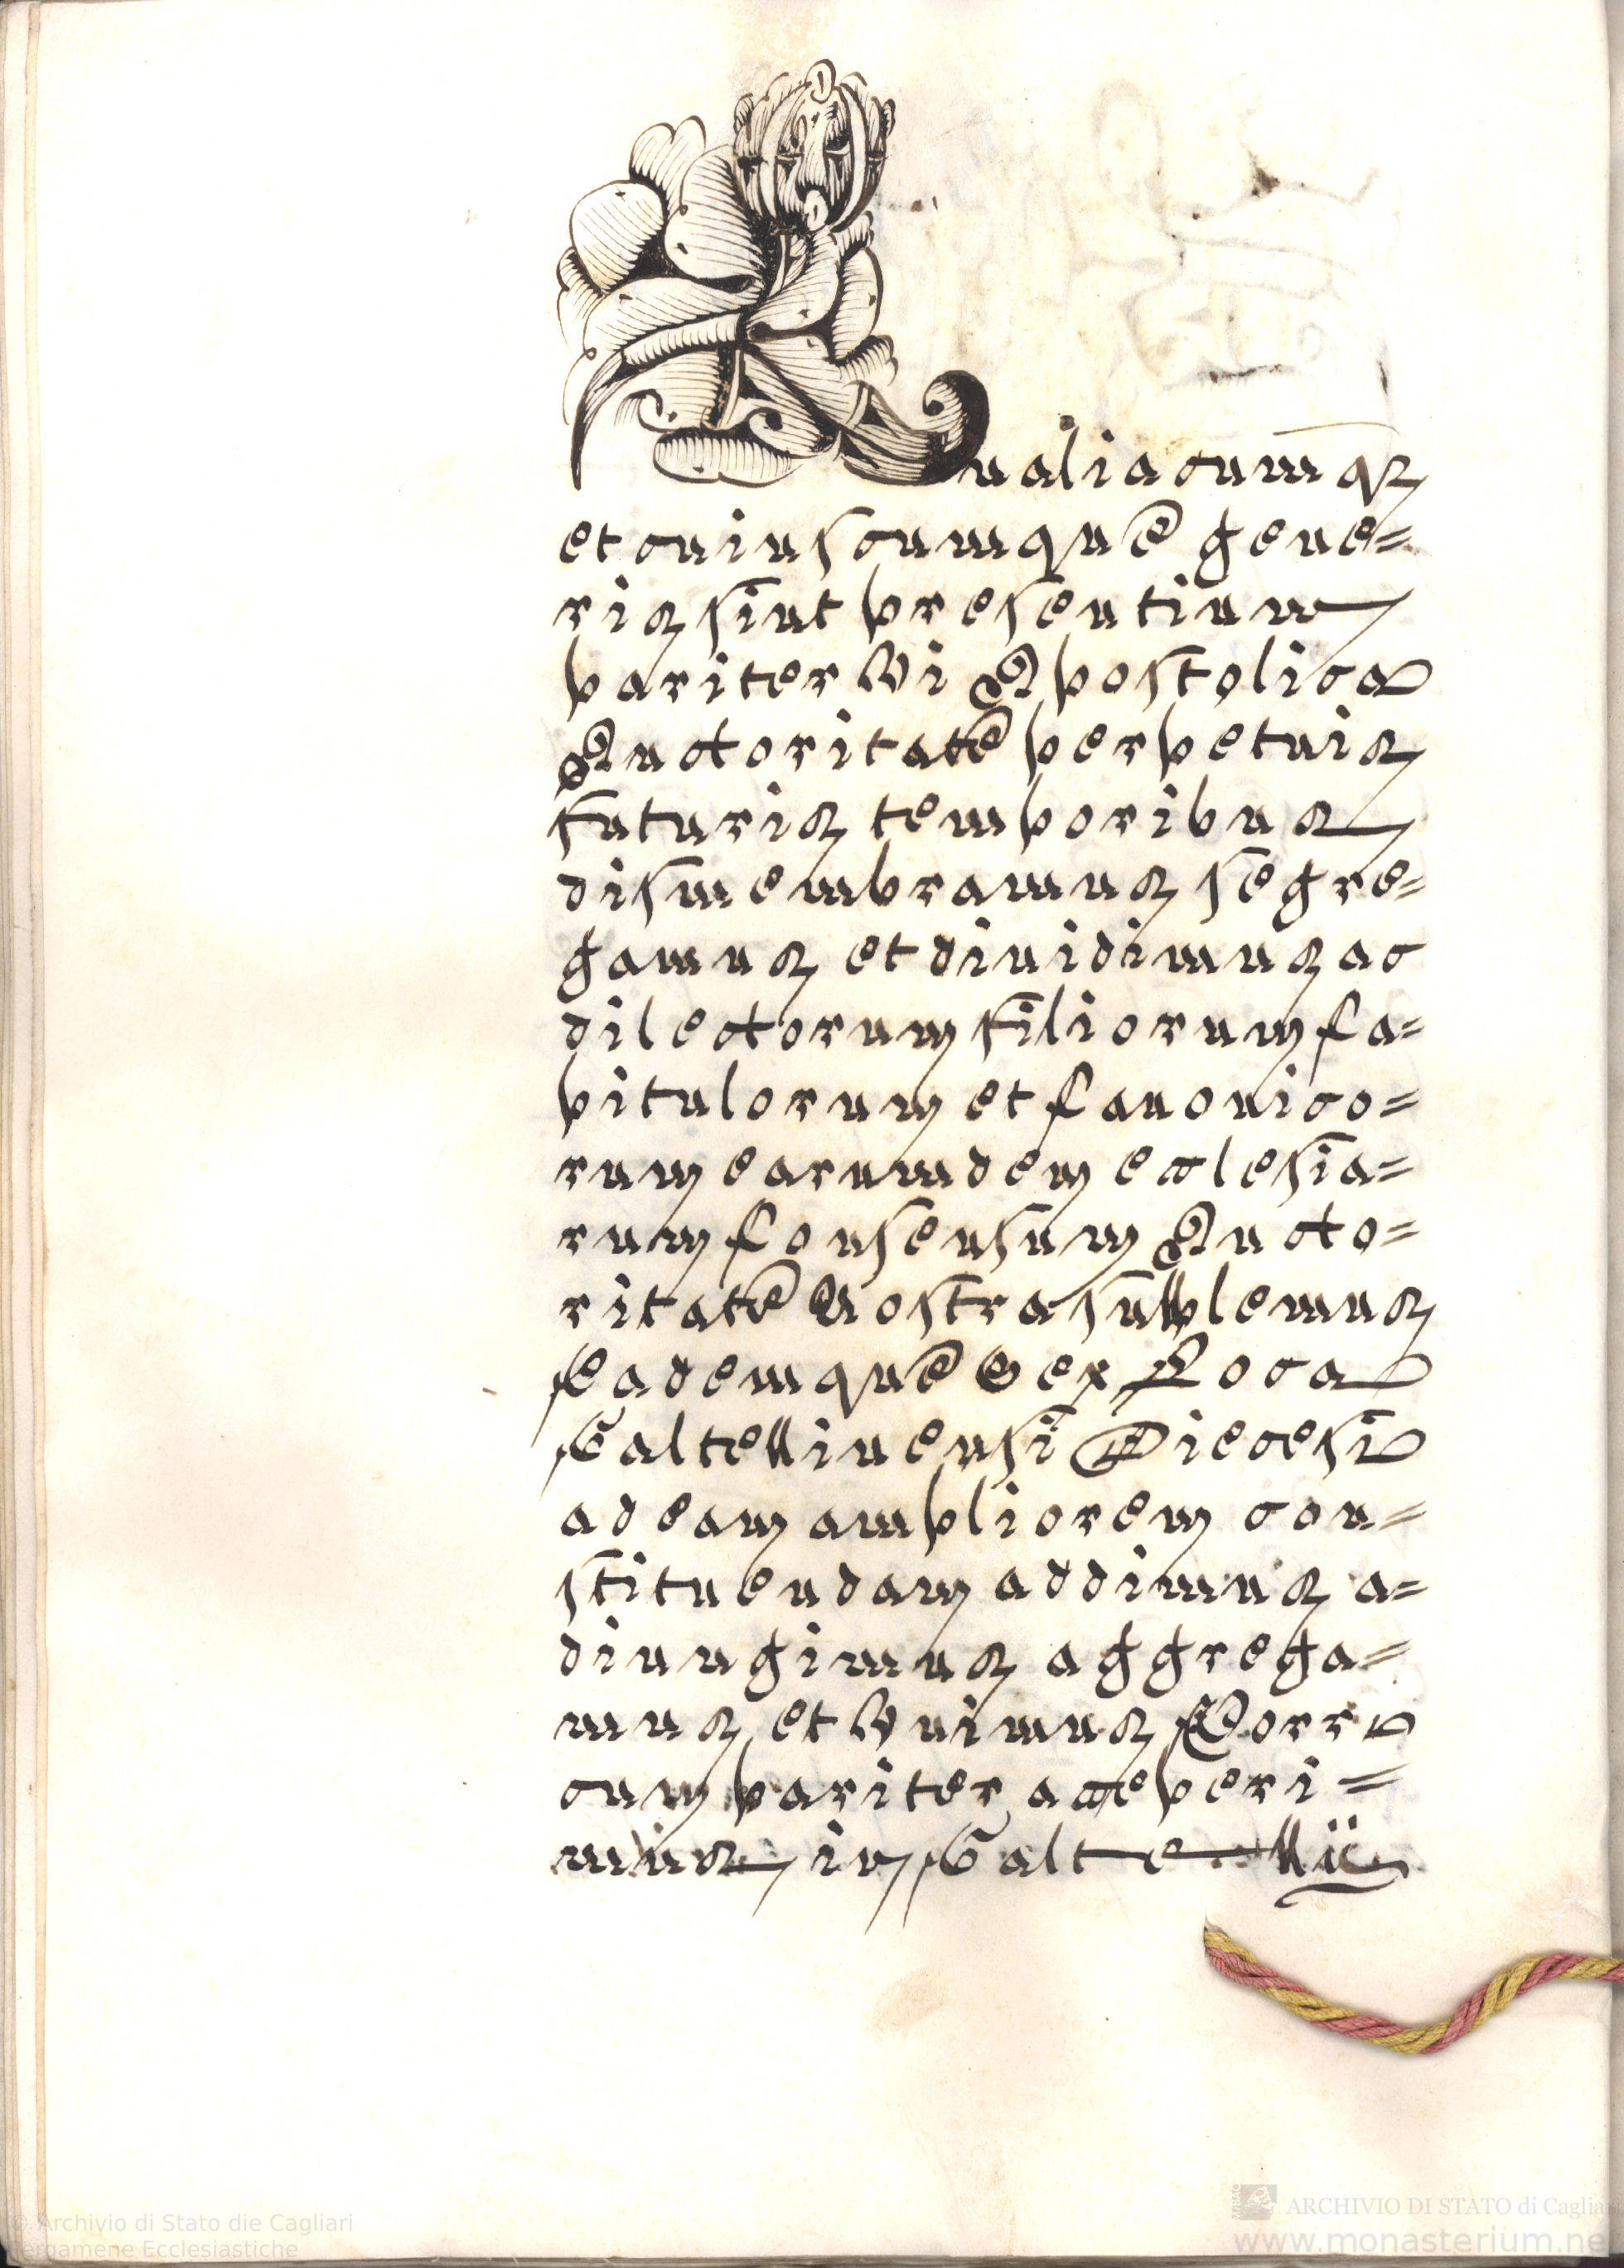 Qualiacumq3
et cuiuscumque gene=
ris sint presentium
pariter vi Apostolica
Auctoritate perpetuis
futuris temporibus
dismembramus segre=
gamus et diuidimus ac
dilectorum filiorum Ca=
pitulorum et Canonico=
rum earumdem ecclesia=
rum Consensum Aucto=
ritate Nostra supplemus
Eademque Sex Loca
Galtellinensi Diecesi
ad eam ampliorem con=
stituendam addimus a=
diungimus aggrega=
mus et vnimus Porro
cum pariter acceperi=
mus in Galtelli
© Archivio di Stato die Cagliari
Pergamene Ecclesiastiche
ARCHIVIO DI STATO di Caglia
www.monasterium.ne